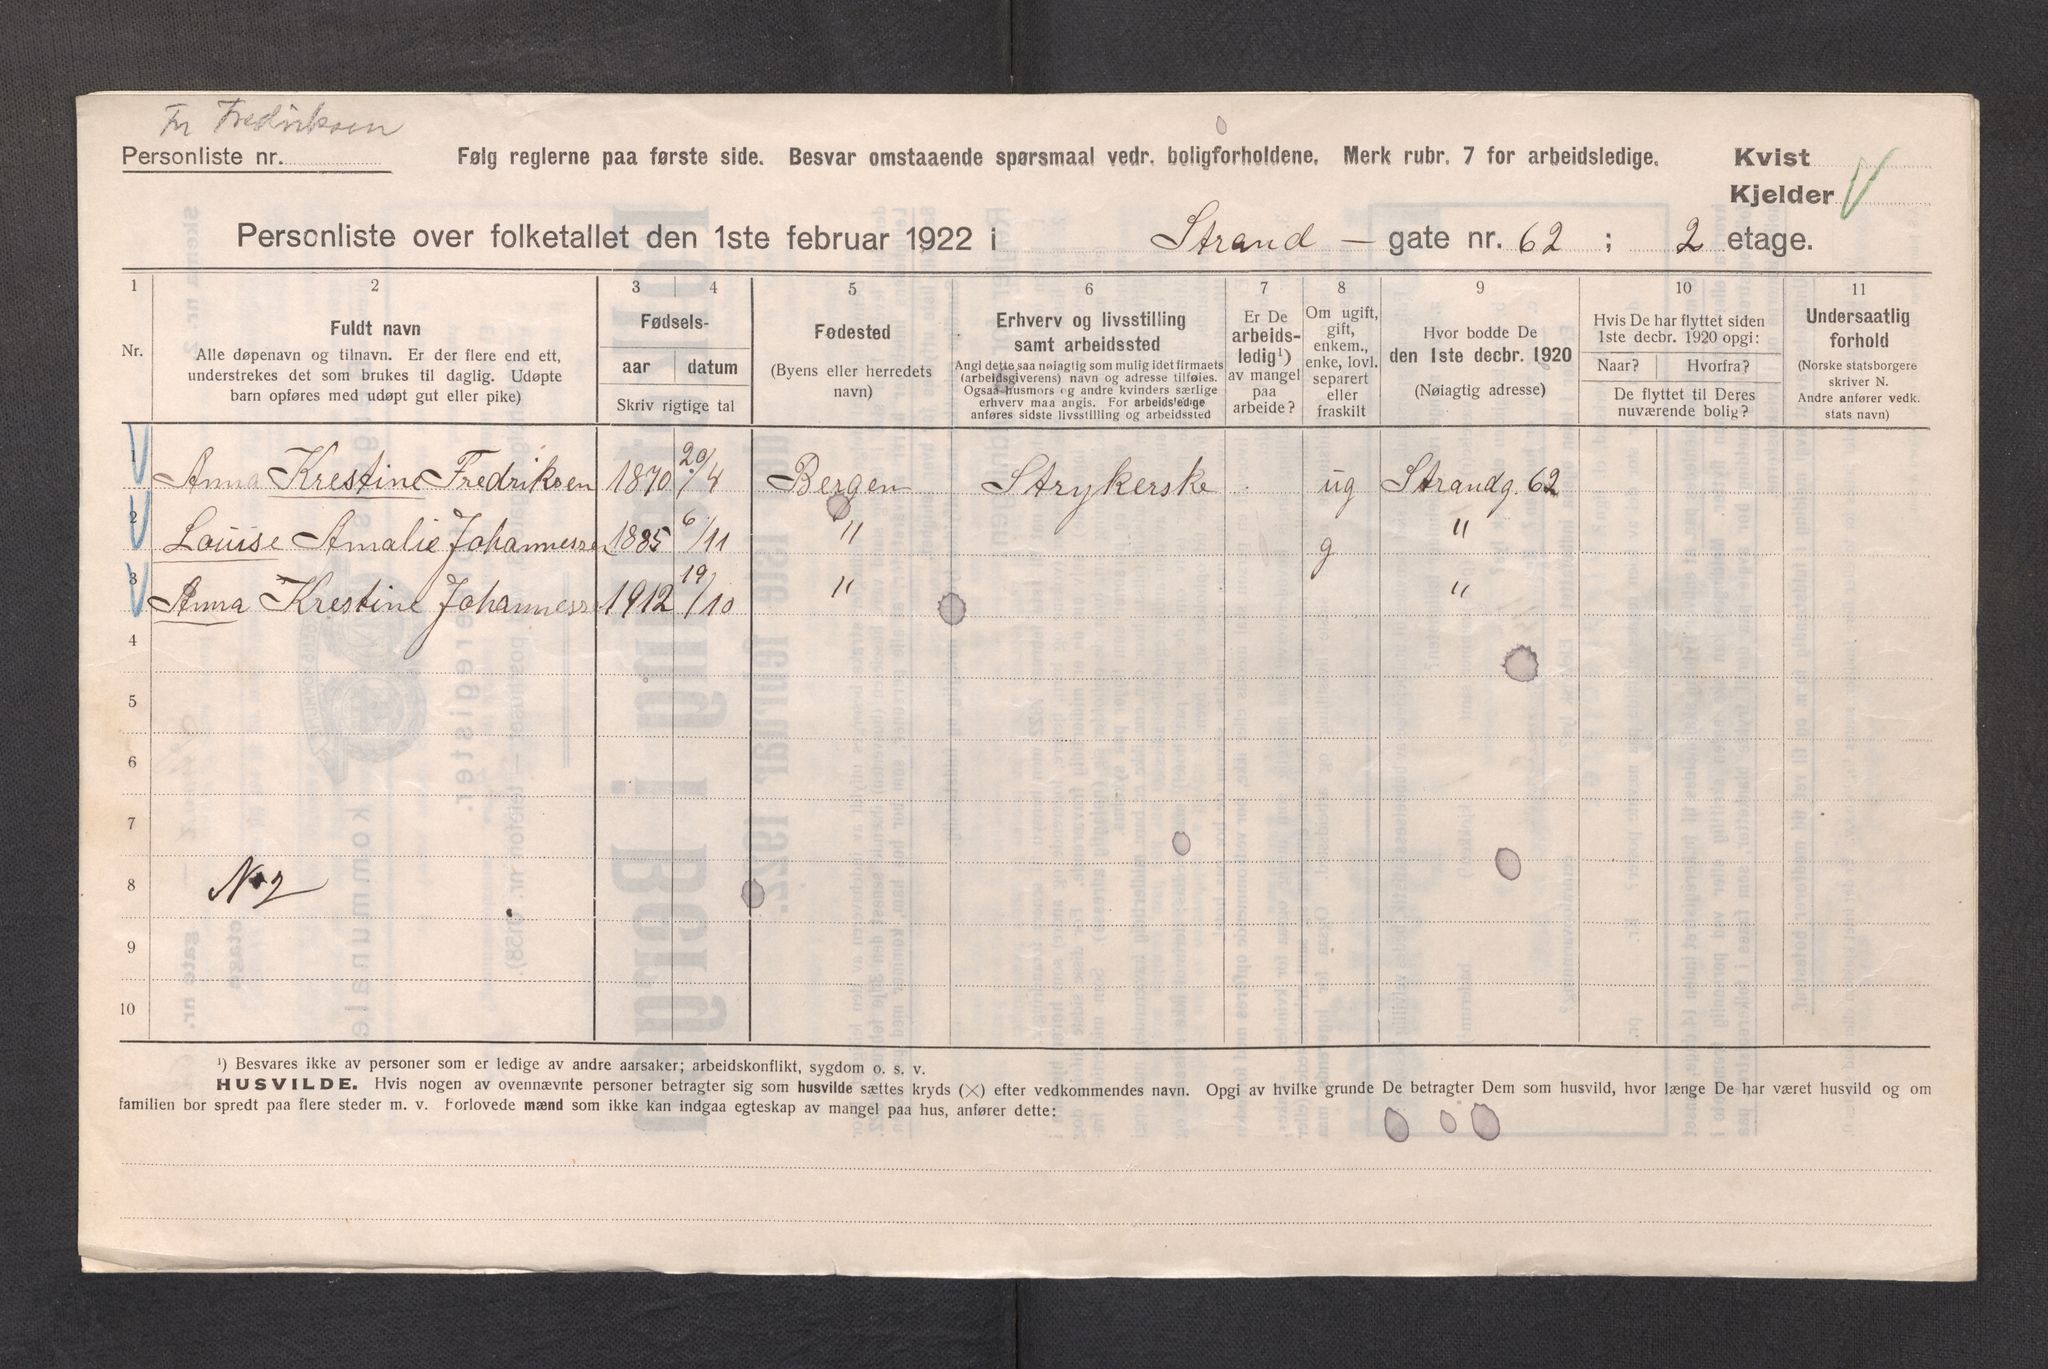 Fr Fredriksen
Personliste nr.
Følg reglerne paa første side. Besvar omstaaende spørsmaal vedr. boligforholdene. Merk rubr. 7 for arbeidsledige.
Kvist
Kjelder
Personliste over folketallet den 1ste februar 1922 i Strand - gate nr. 62 ; 2 etage.
1 2 3 4 5 6 7 8 9 10 11
Nr.
Fuldt navn
Alle døpenavn og tilnavn. Er der flere end ett,
understrekes det som brukes til daglig. Udøpte
barn opføres med udøpt gut eller pike)
Fødsels-
aar datum
Skriv rigtige tal
Fødested
(Byens eller herredets
navn)
Erhverv og livsstilling
samt arbeidssted
Angi dette saa nøiagtig som mulig idet firmaets
(arbeidsgiverens) navn og adresse tilføies.
Ogsaa husmors og andre kvinders særlige
erhverv maa angis. For arbeidsledige
anføres sidste livsstilling og arbeidssted
Er De
arbeids-
ledig¹)
av mangel
paa
arbeide?
Om ugift,
gift,
enkem.,
enke, lovl.
separert
eller
fraskilt
Hvor bodde De
den 1ste decbr. 1920
(Nøiagtig adresse)
Hvis De har flyttet siden
1ste decbr. 1920 opgi:
Naar? Hvorfra?
De flyttet til Deres
nuværende bolig?
Undersaatlig
forhold
(Norske statsborgere
skriver N.
Andre anfører vedk.
stats navn)
1 Anna Krestine Fredriksen 1870 20/4 Bergen Strykerske ug Strandg. 62
2 Louise Amalie Johannessen 1885 6/11 " g "
3 Anna Krestine Johannesse 1912 19/10 " "
4
5
6
7
8 No 2
9
10
¹) Besvares ikke av personer som er ledige av andre aarsaker; arbeidskonflikt, sygdom o. s. v.
HUSVILDE. Hvis nogen av ovennævnte personer betragter sig som husvilde sættes kryds (×) efter vedkommendes navn. Opgi av hvilke grunde De betragter Dem som husvild, hvor længe De har været husvild og om
familien bor spredt paa flere steder m. v. Forlovede mænd som ikke kan indgaa egteskap av mangel paa hus, anfører dette: